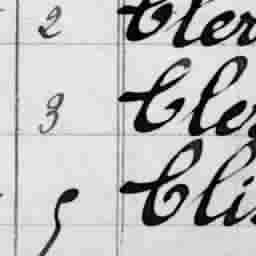 2 Cler
3 Cle
5 Cli